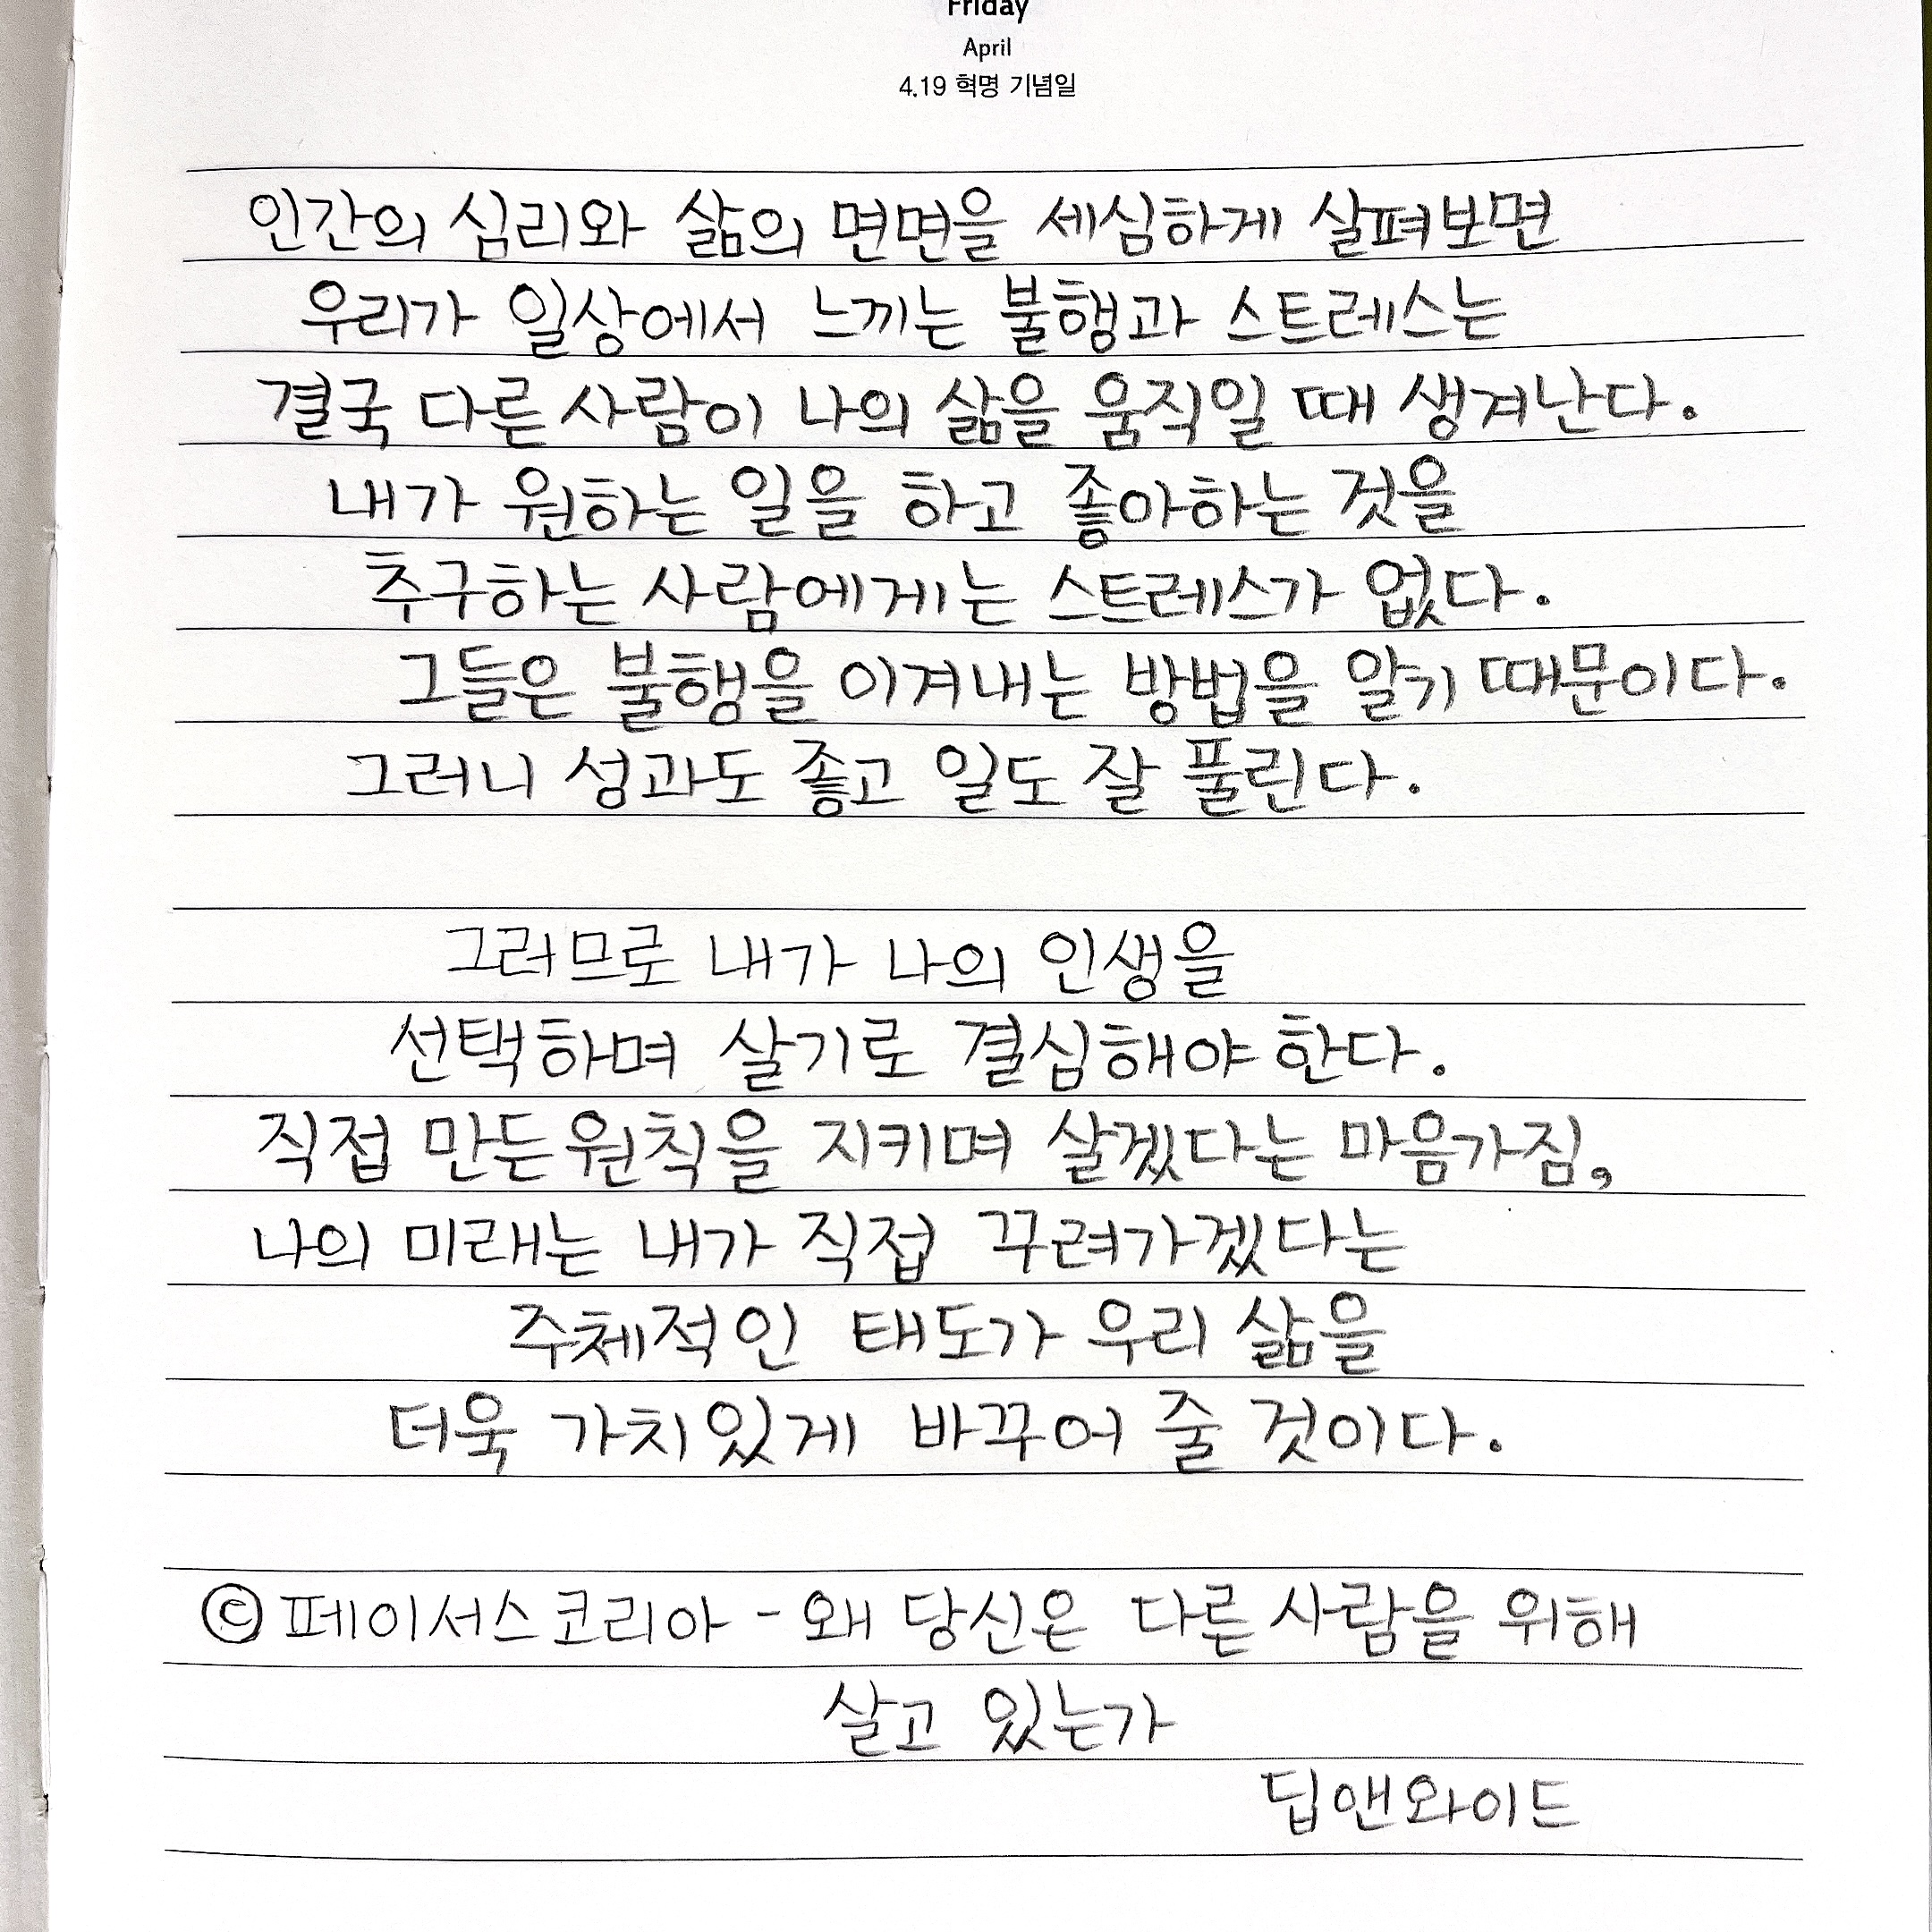 Friday
April
4.19 혁명 기념일
인간의 심리와 삶의 면면을 세심하게 살펴보면
우리가 일상에서 느끼는 불행과 스트레스는
결국 다른 사람이 나의 삶을 움직일 때 생겨난다.
내가 원하는 일을 하고 좋아하는 것을
추구하는 사람에게는 스트레스가 없다.
그들은 불행을 이겨내는 방법을 알기 때문이다.
그러니 성과도 좋고 일도 잘 풀린다.
그러므로 내가 나의 인생을
선택하며 살기로 결심해야 한다.
직접 만든 원칙을 지키며 살겠다는 마음가짐,
나의 미래는 내가 직접 꾸려가겠다는
주체적인 태도가 우리 삶을
더욱 가치있게 바꾸어 줄 것이다.
©페이서스코리아 - 왜 당신은 다른 사람을 위해
살고 있는가
딥앤와이드